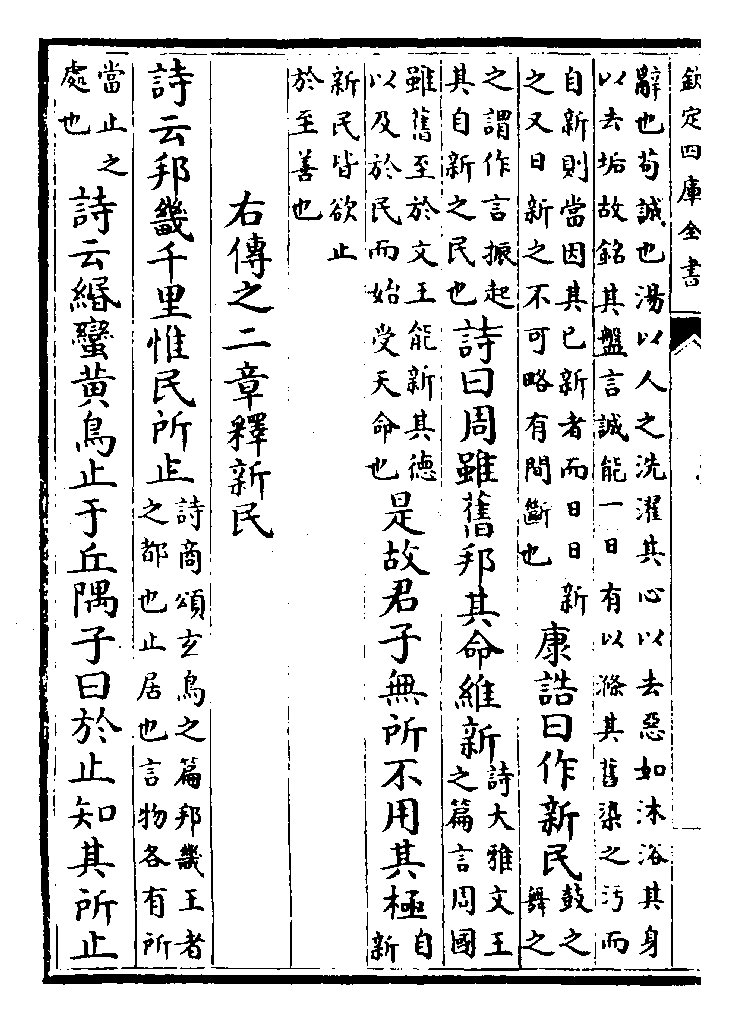 欽定四庫全書
辭也苟誠也湯以人之洗濯其心以去惡如沐浴其身
以去垢故銘其盤言誠能一日有以滌其舊染之污而
自新則當因其已新者而日日新
之又日新之不可略有間斷也
康誥曰作新民
鼓之
舞之
之謂作言振起
其自新之民也
詩曰周雖舊邦其命維新
詩大雅文王
之篇言周國
雖舊至於文王能新其德
以及於民而始受天命也
是故君子無所不用其極
自
新
新民皆欲止
於至善也
右傳之二章釋新民
詩云邦畿千里惟民所止
詩商頌玄鳥之篇邦畿王者
之都也止居也言物各有所
當止之
處也
詩云緡蠻黄鳥止于丘隅子曰於止知其所止